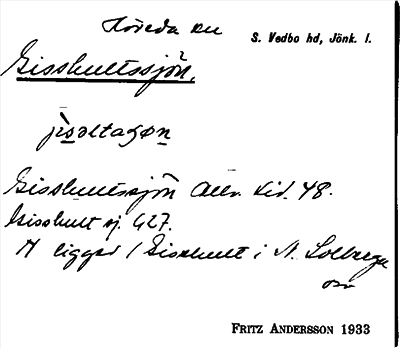 Höreda sn
S. Vedbo hd, Jönk. l.
Gisshultssjön.
Gisshultssjön Allm. tid. 48.
Gisshult sj. G27.
N ligger / Gisshult i N. Solberga
sn
FRITZ ANDERSSON 1933